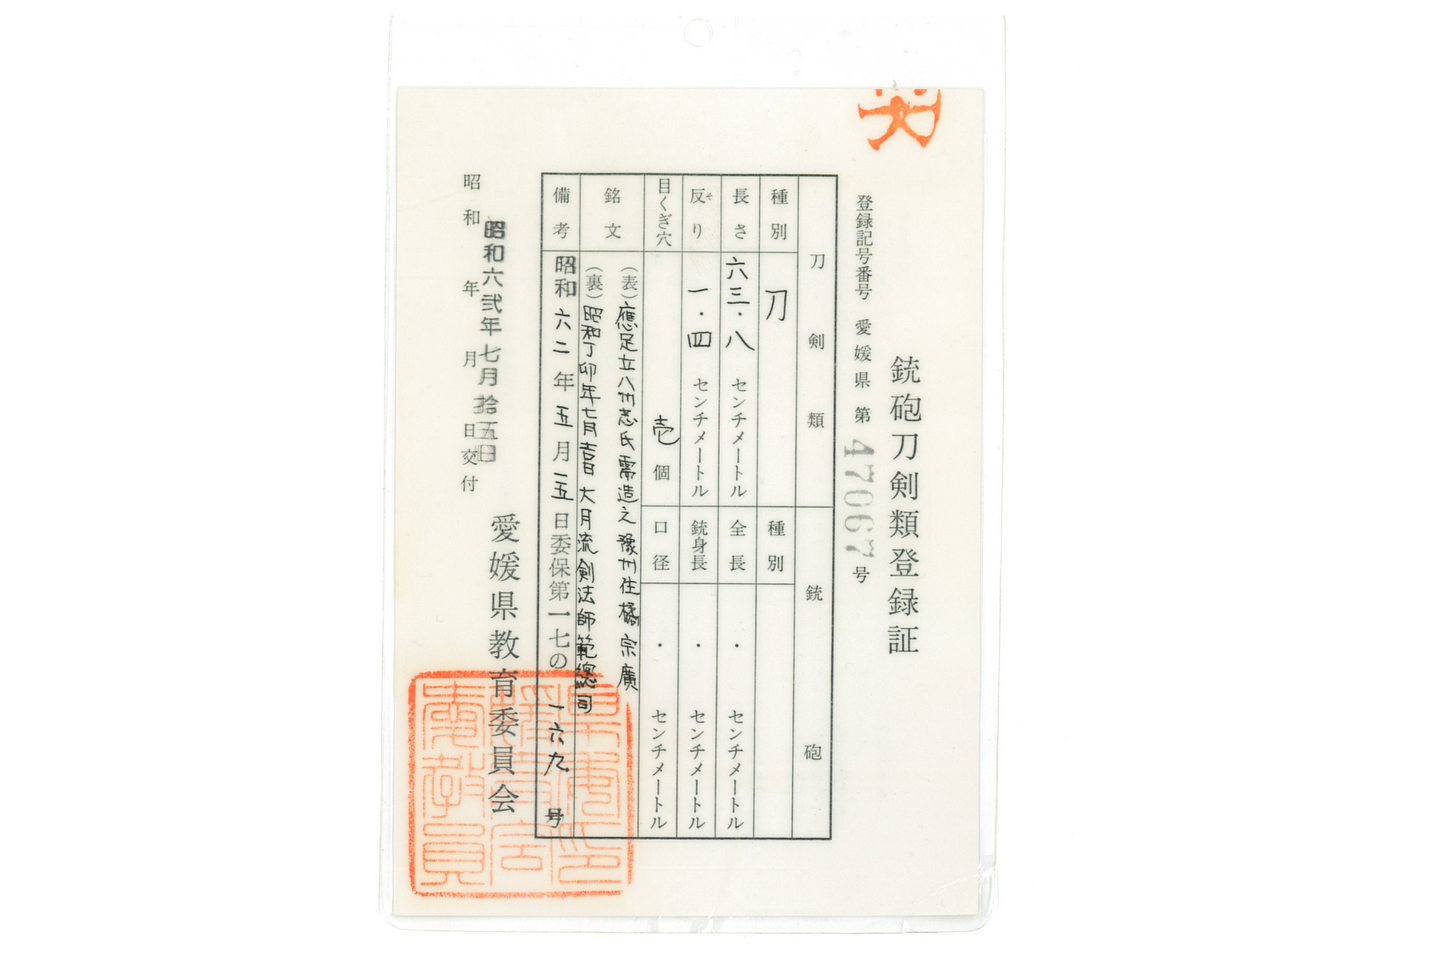 銃砲刀剣類登録証
登録記号番号 愛媛県 第 47067 号
刀剣類 銃砲
種別 刀 種別
長さ 六三・八 センチメートル 全長 ・ センチメートル
反り そ 一・四 センチメートル 銃身長 ・ センチメートル
目くぎ穴 壱 個 口径 ・ センチメートル
銘文 (表) 應足立八州志氏需造之 豫州住橘宗廣
(裏) 昭和丁卯年七月吉日 大月流剣法師範總司
備考 昭和六二年五月一五日委保第一七の一六九号
昭和 年 月 日交付
昭和六弐年七月拾五日
愛媛県教育委員会